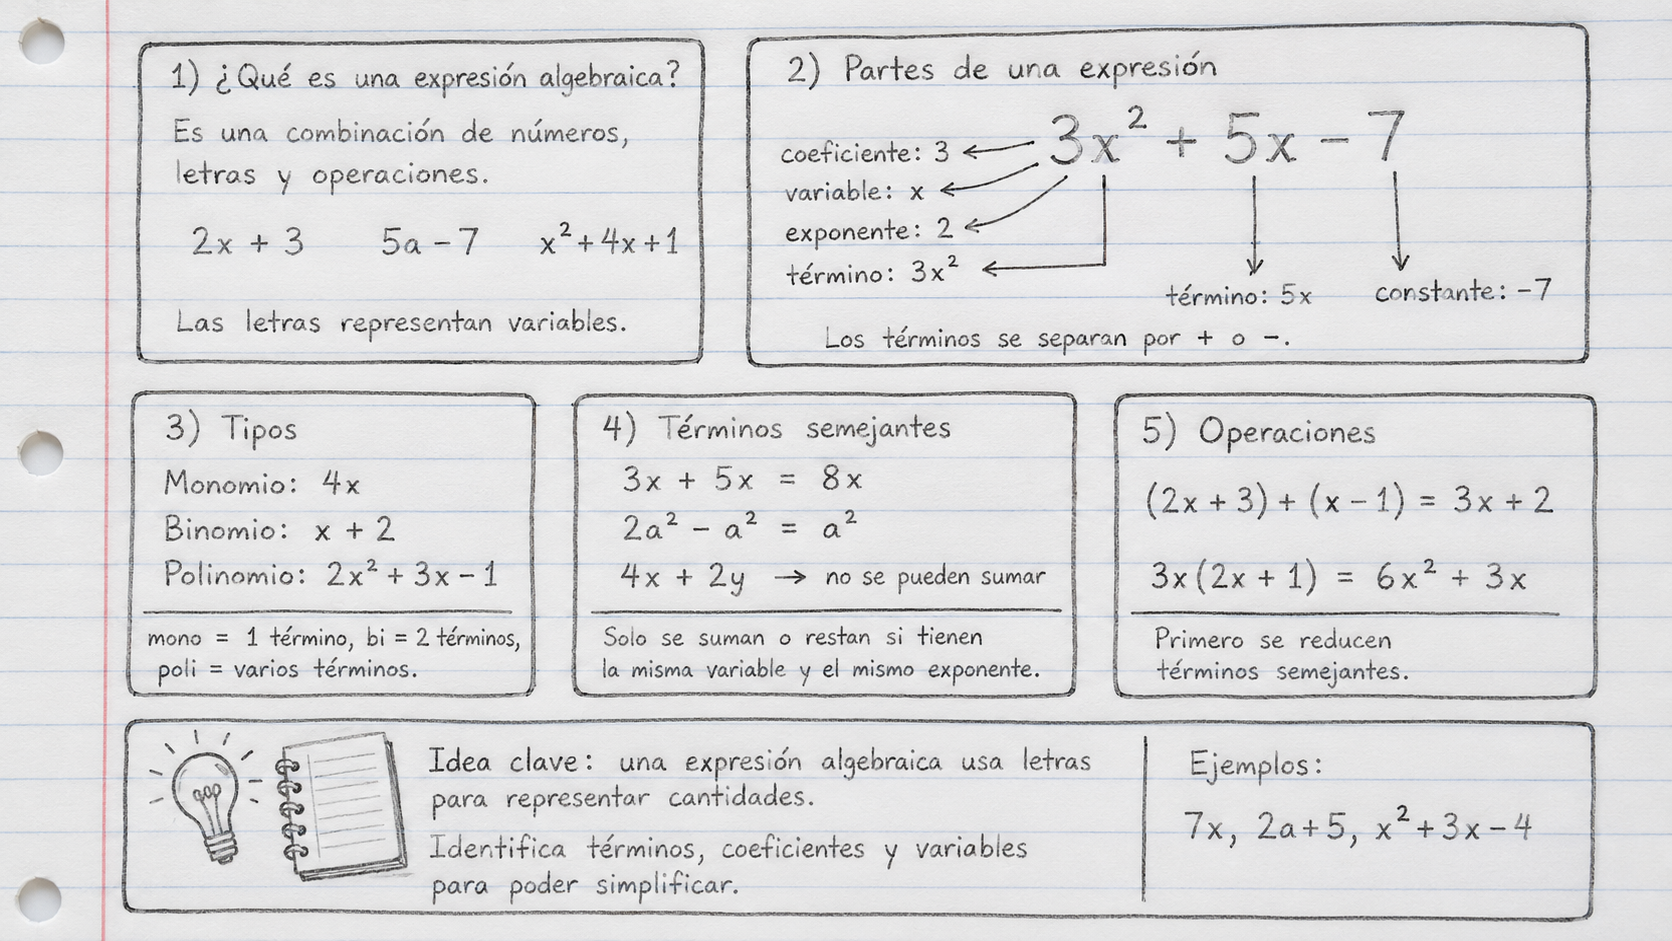 1) ¿Qué es una expresión algebraica?
Es una combinación de números,
letras y operaciones.
2x + 3 5a - 7 x² + 4x + 1
Las letras representan variables.
2) Partes de una expresión
3x² + 5x - 7
coeficiente: 3
variable: x
exponente: 2
término: 3x²
término: 5x
constante: -7
Los términos se separan por + o -.
3) Tipos
Monomio: 4x
Binomio: x + 2
Polinomio: 2x² + 3x - 1
mono = 1 término, bi = 2 términos,
poli = varios términos.
4) Términos semejantes
3x + 5x = 8x
2a² - a² = a²
4x + 2y → no se pueden sumar
Solo se suman o restan si tienen
la misma variable y el mismo exponente.
5) Operaciones
(2x + 3) + (x - 1) = 3x + 2
3x(2x + 1) = 6x² + 3x
Primero se reducen
términos semejantes.
Idea clave: una expresión algebraica usa letras
para representar cantidades.
Identifica términos, coeficientes y variables
para poder simplificar.
Ejemplos:
7x, 2a+5, x²+3x-4